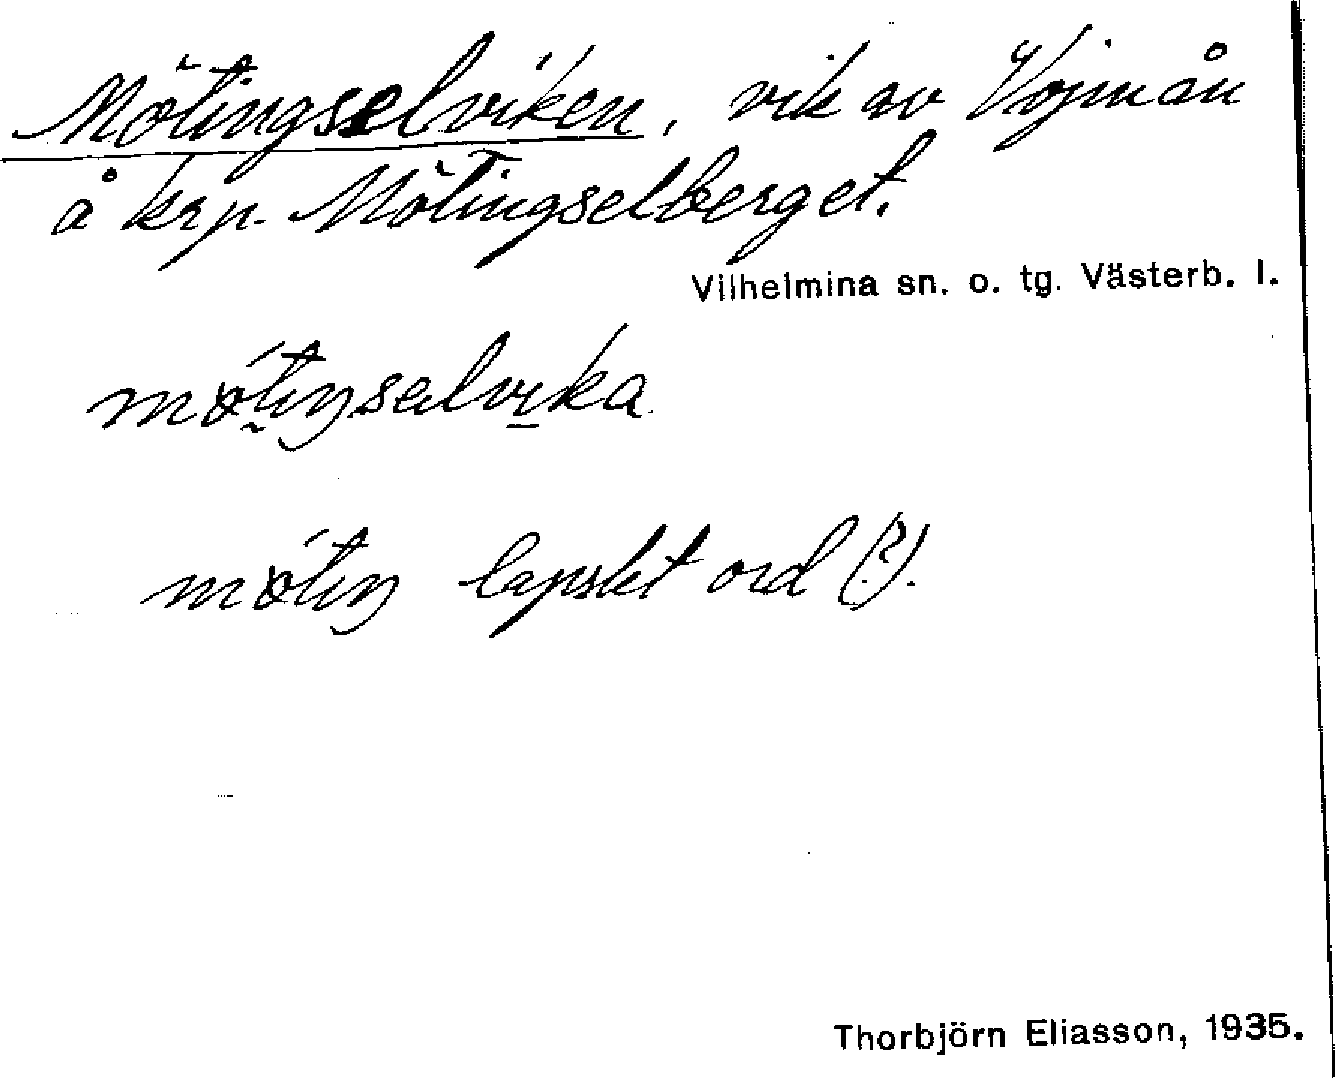 Mötingselviken, vik av Vojmån
å krp. Mötingselberget.
Vilhelmina sn. o. tg. Västerb. l.
mø̀tiŋsęlvika
mø̀tiŋ lapskt ord (?).
Thorbjörn Eliasson, 1935.